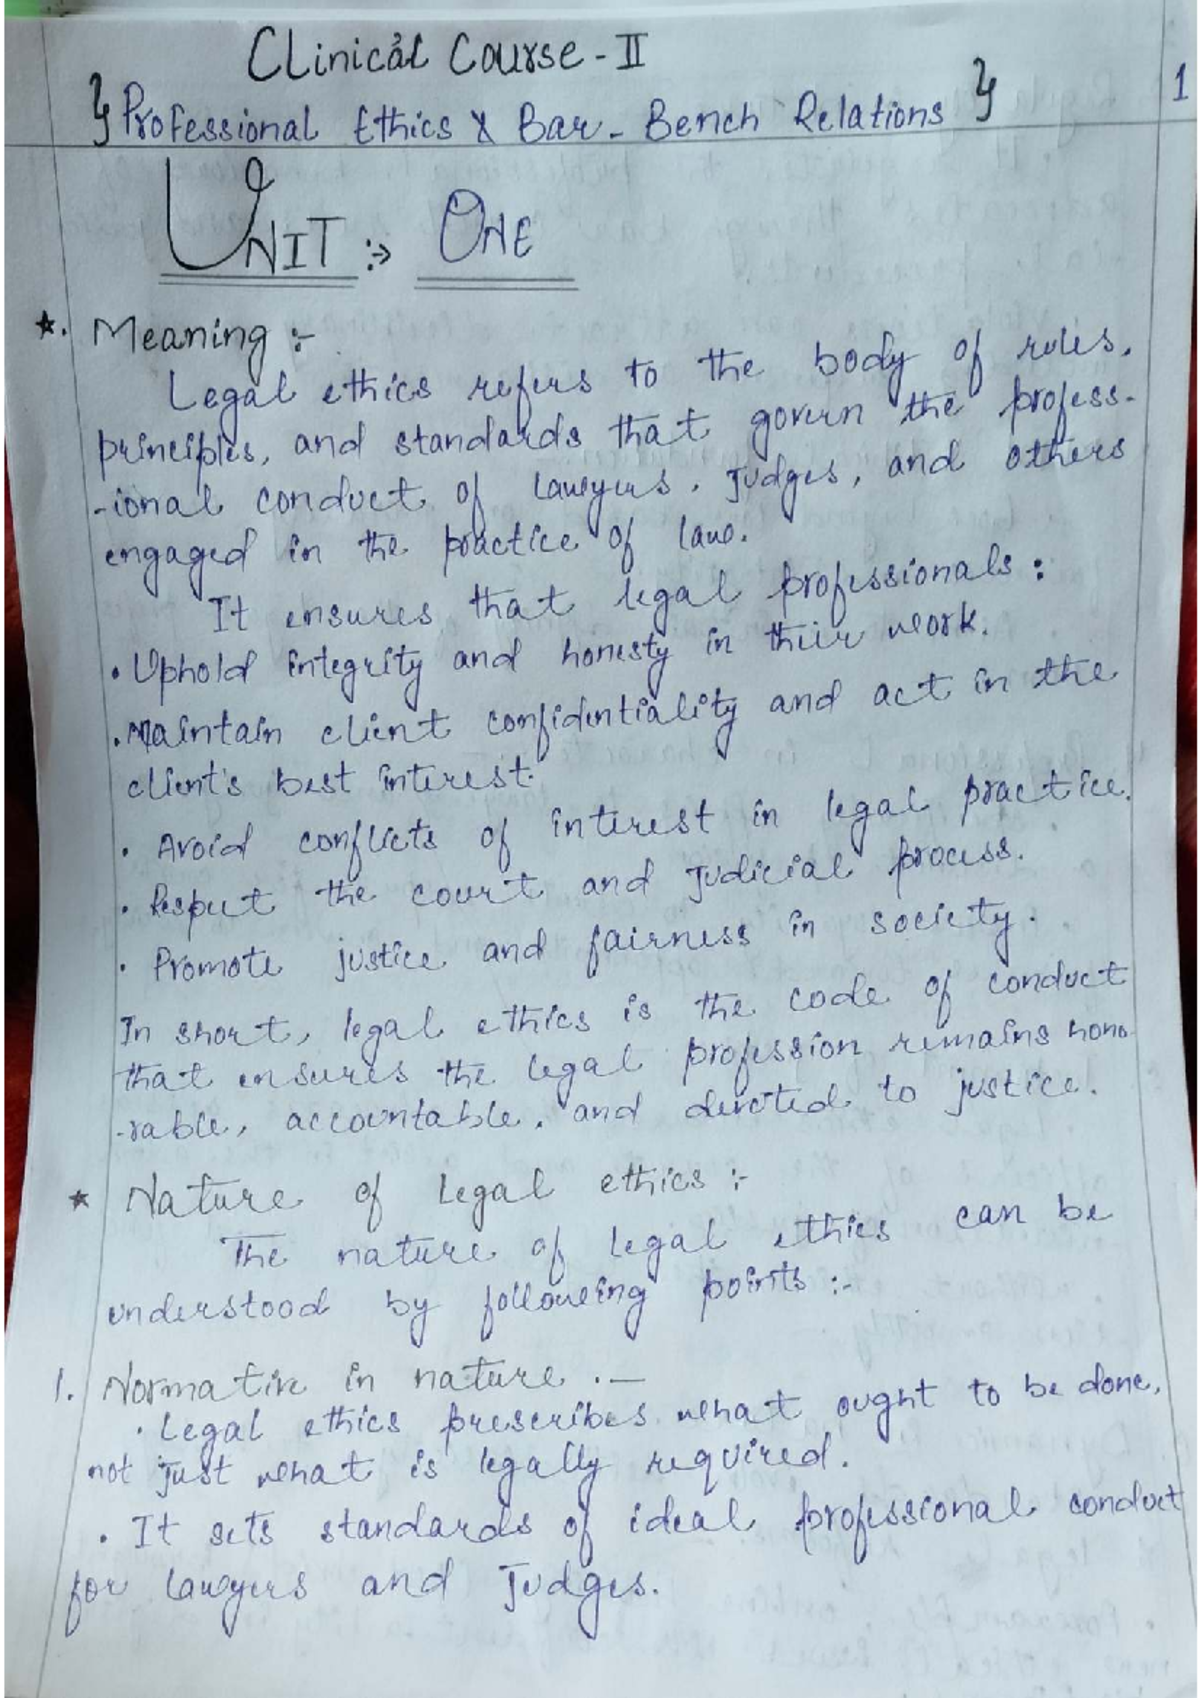 Clinical Course - II
1
Professional Ethics & Bar - Bench Relations
UNIT :→ ONE
★. Meaning :-
Legal ethics refers to the body of rules,
principles, and standards that govern the profess-
-ional conduct of lawyers, judges, and others
engaged in the practice of law.
It ensures that legal professionals :
• Uphold integrity and honesty in their work.
• Maintain client confidentiality and act in the
client's best interest.
• Avoid conflicts of interest in legal practice.
• Respect the court and judicial process.
• Promote justice and fairness in society.
In short, legal ethics is the code of conduct
that ensures the legal profession remains hono-
-rable, accountable, and devoted to justice.
★ Nature of legal ethics :-
The nature of legal ethics can be
understood by following points :-
1. Normative in nature . —
• Legal ethics prescribes what ought to be done,
not just what is legally required.
• It sets standards of ideal professional conduct
for lawyers and judges.